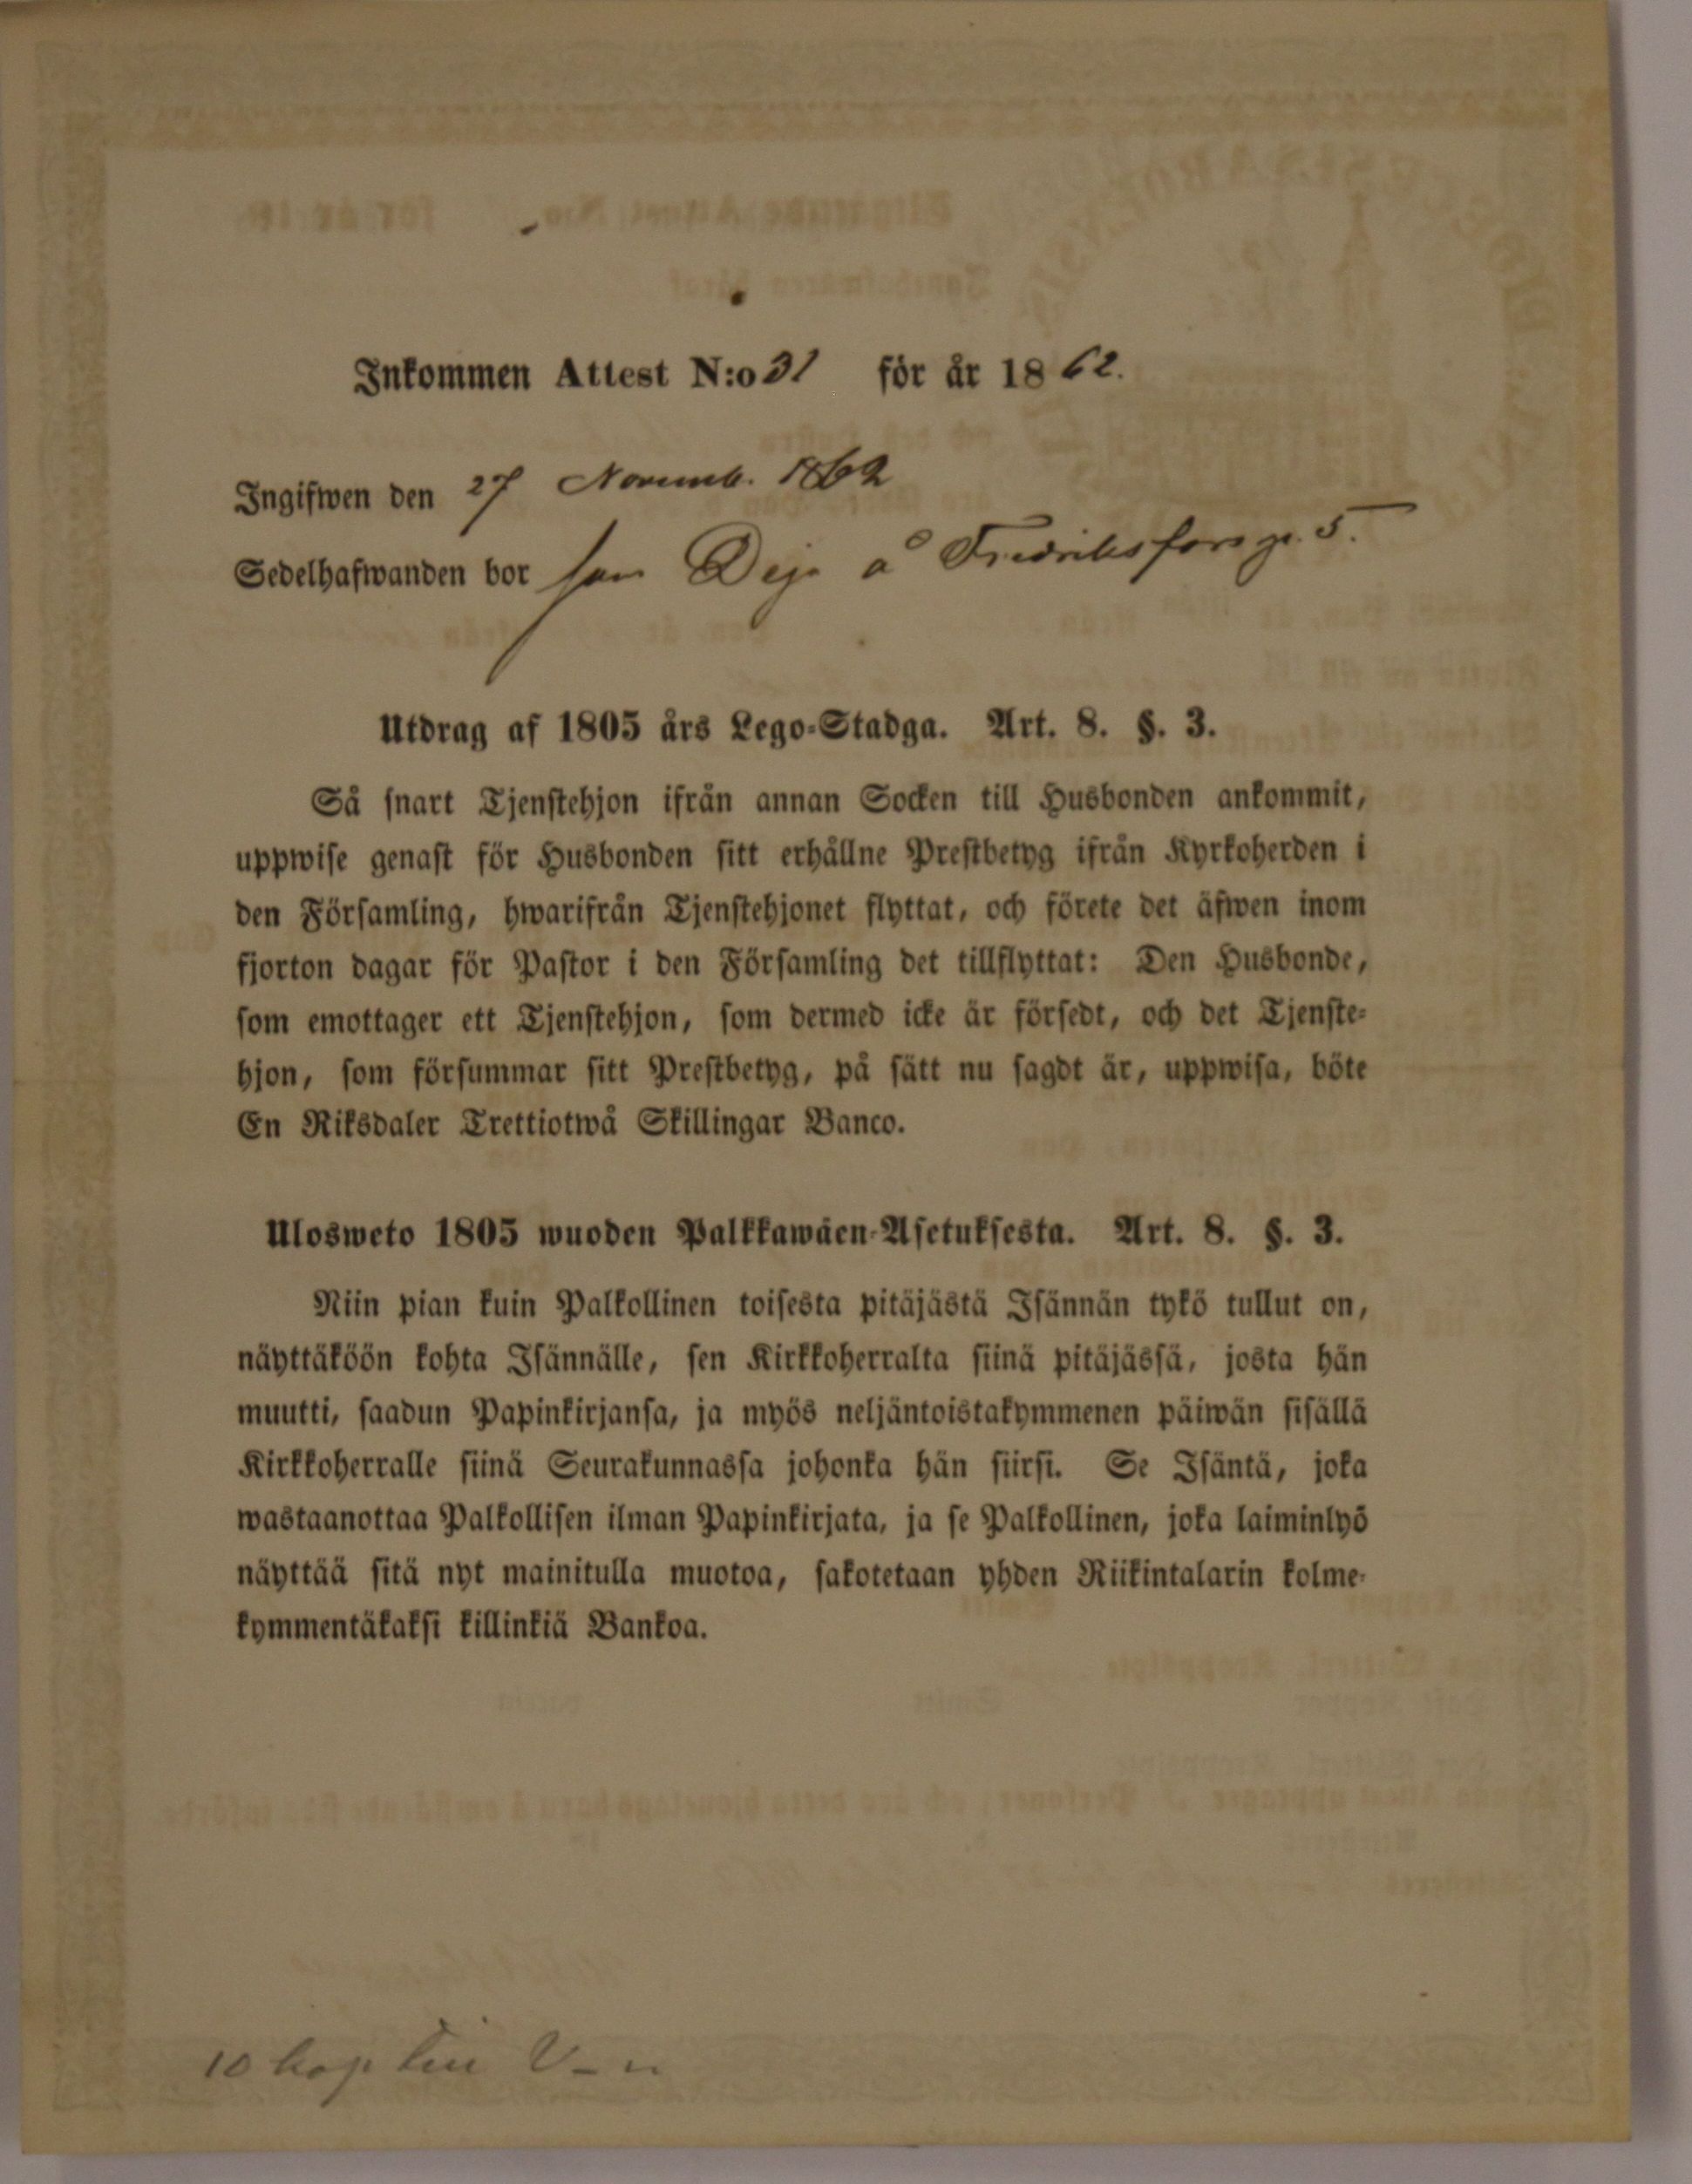 Inkommen Attest N:o 31 för år 1862.
Ingifwen den 27 Novemb. 1862
Sedelhafwanden bor som Deja å Fredriksfors gr. 5.
Utdrag af 1805 års Lego-Stadga. Art. 8. §. 3.
Så snart Tjenstehjon ifrån annan Socken till Husbonden ankommit,
uppwise genast för Husbonden sitt erhållne Prestbetyg ifrån Kyrkoherden i
den Församling, hwarifrån Tjenstehjonet flyttat, och förete det äfwen inom
fjorton dagar för Pastor i den Församling det tillflyttat: Den Husbonde,
som emottager ett Tjenstehjon, som dermed icke är försedt, och det Tjenste-
hjon, som försummar sitt Prestbetyg, på sätt nu sagdt är, uppwisa, böte
En Riksdaler Trettiotwå Skillingar Banco.
Ulosweto 1805 wuoden Palkkawäen-Asetuksesta. Art. 8. §. 3.
Niin pian kuin Palkollinen toisesta pitäjästä Isännän tykö tullut on,
näyttäköön kohta Isännälle, sen Kirkkoherralta siinä pitäjässä, josta hän
muutti, saadun Papinkirjansa, ja myös neljäntoistakymmenen päiwän sisällä
Kirkkoherralle siinä Seurakunnassa johonka hän siirsi. Se Isäntä, joka
wastaanottaa Palkollisen ilman Papinkirjata, ja se Palkollinen, joka laiminlyö
näyttää sitä nyt mainitulla muotoa, sakotetaan yhden Riikintalarin kolme-
kymmentäkaksi killinkiä Bankoa.
10 kop